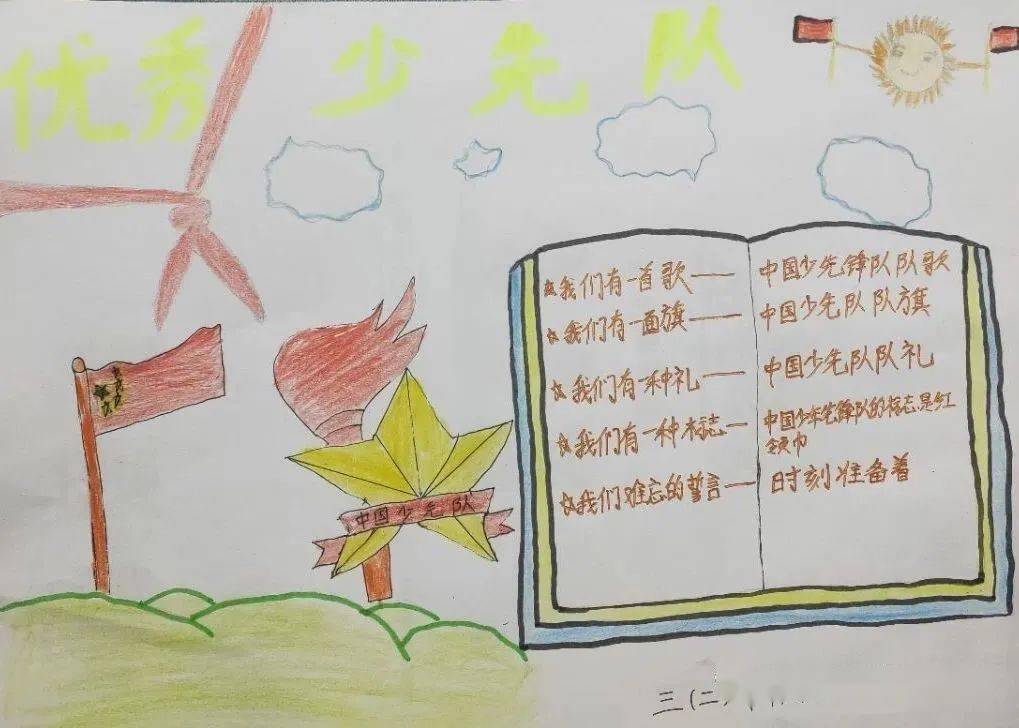 优秀少先队
我们有一首歌——中国少先锋队队歌
我们有一面旗——中国少先队队旗
我们有一种礼——中国少先队队礼
我们有一种标志—中国少年先锋队的标志是红
领巾
我们难忘的誓言——时刻准备着
中国少先队
三(二